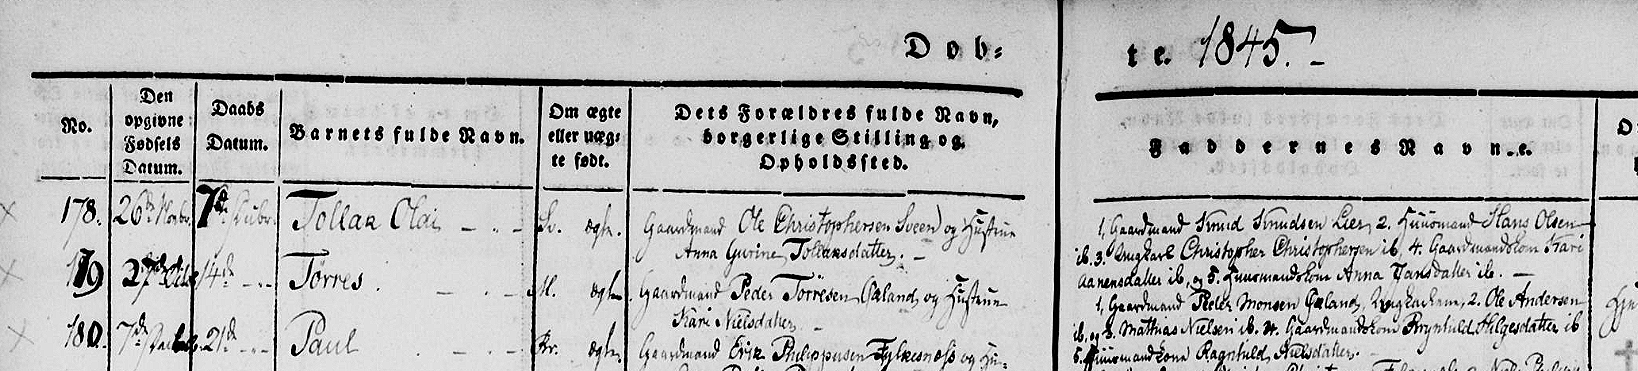 Dob-
te. 1845.-
No.
Den
opgivne
Fødsels
Datum.
Daabs
Datum.
Barnets fulde Navn.
Om ægte
eller uæg-
te født.
Dets Forældres fulde Navn,
borgerlige Stilling og
Opholdssted.
Faddernes Navn
178. 26de 7de Tollak Olai Sv. ægte. Gaardmand Ole Christophersen Sveen og Hustrue
Anna Gurine Tollaksdatter. -
179 27de 14de Torres ægte Gaardmand Peder Törresen Gæland og Hustrue
Kari Nielsdatter
180. 7de 21de Paul ægte. Gaardmand Erik Philippusen Fylkesnæss og Hu-
1, Gaardmand Knud Knudsen Lier, 2. Huusmand Hans Olsen
ib. 3. Ungkarl Christopher Christophersen ib, 4. Gaardmandskone Kari
Aanensdatter ib, og 5. Huusmandskone Anna Jansdatter ib. -
1, Gaardmand Peder Monsen Gæland, 2. Ole Andersen
ib, og 3. Mathias Nielsen ib. 4. Gaardmandskone Brynhild Helgesdatter ib
5. Huusmandskone Ragnhild Nielsdatter. -